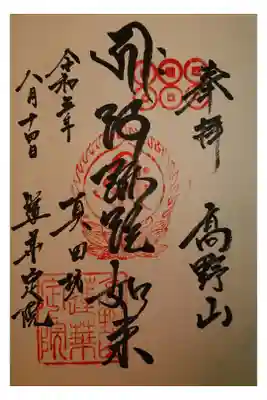 奉拝　高野山
阿弥陀如来
真田坊
令和五年
八月十四日
蓮華定院